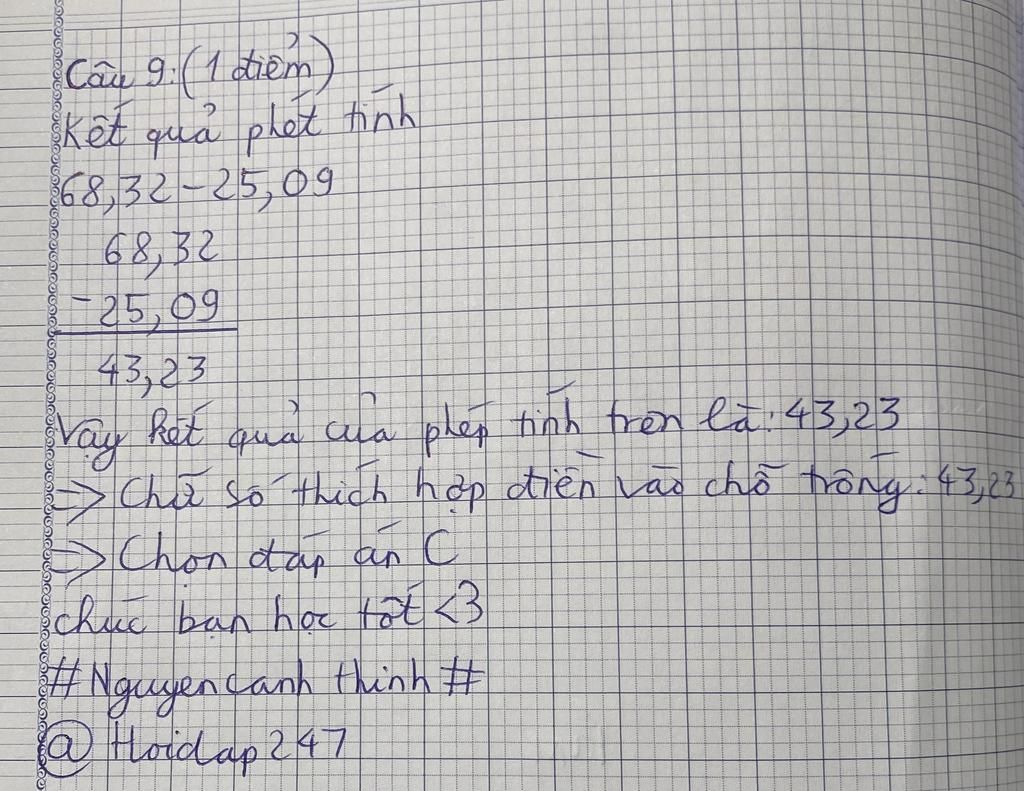 Câu 9: (1 điểm)
Kết quả phét tính
68,32 - 25,09
68,32
- 25,09
43,23
Vậy kết quả của phép tính trên là: 43,23
=> Chữ số thích hợp điền vào chỗ trống: 43,23
=> Chọn đáp án C
chúc bạn học tốt <3
# Nguyencanh thinh #
@ Hoidap247